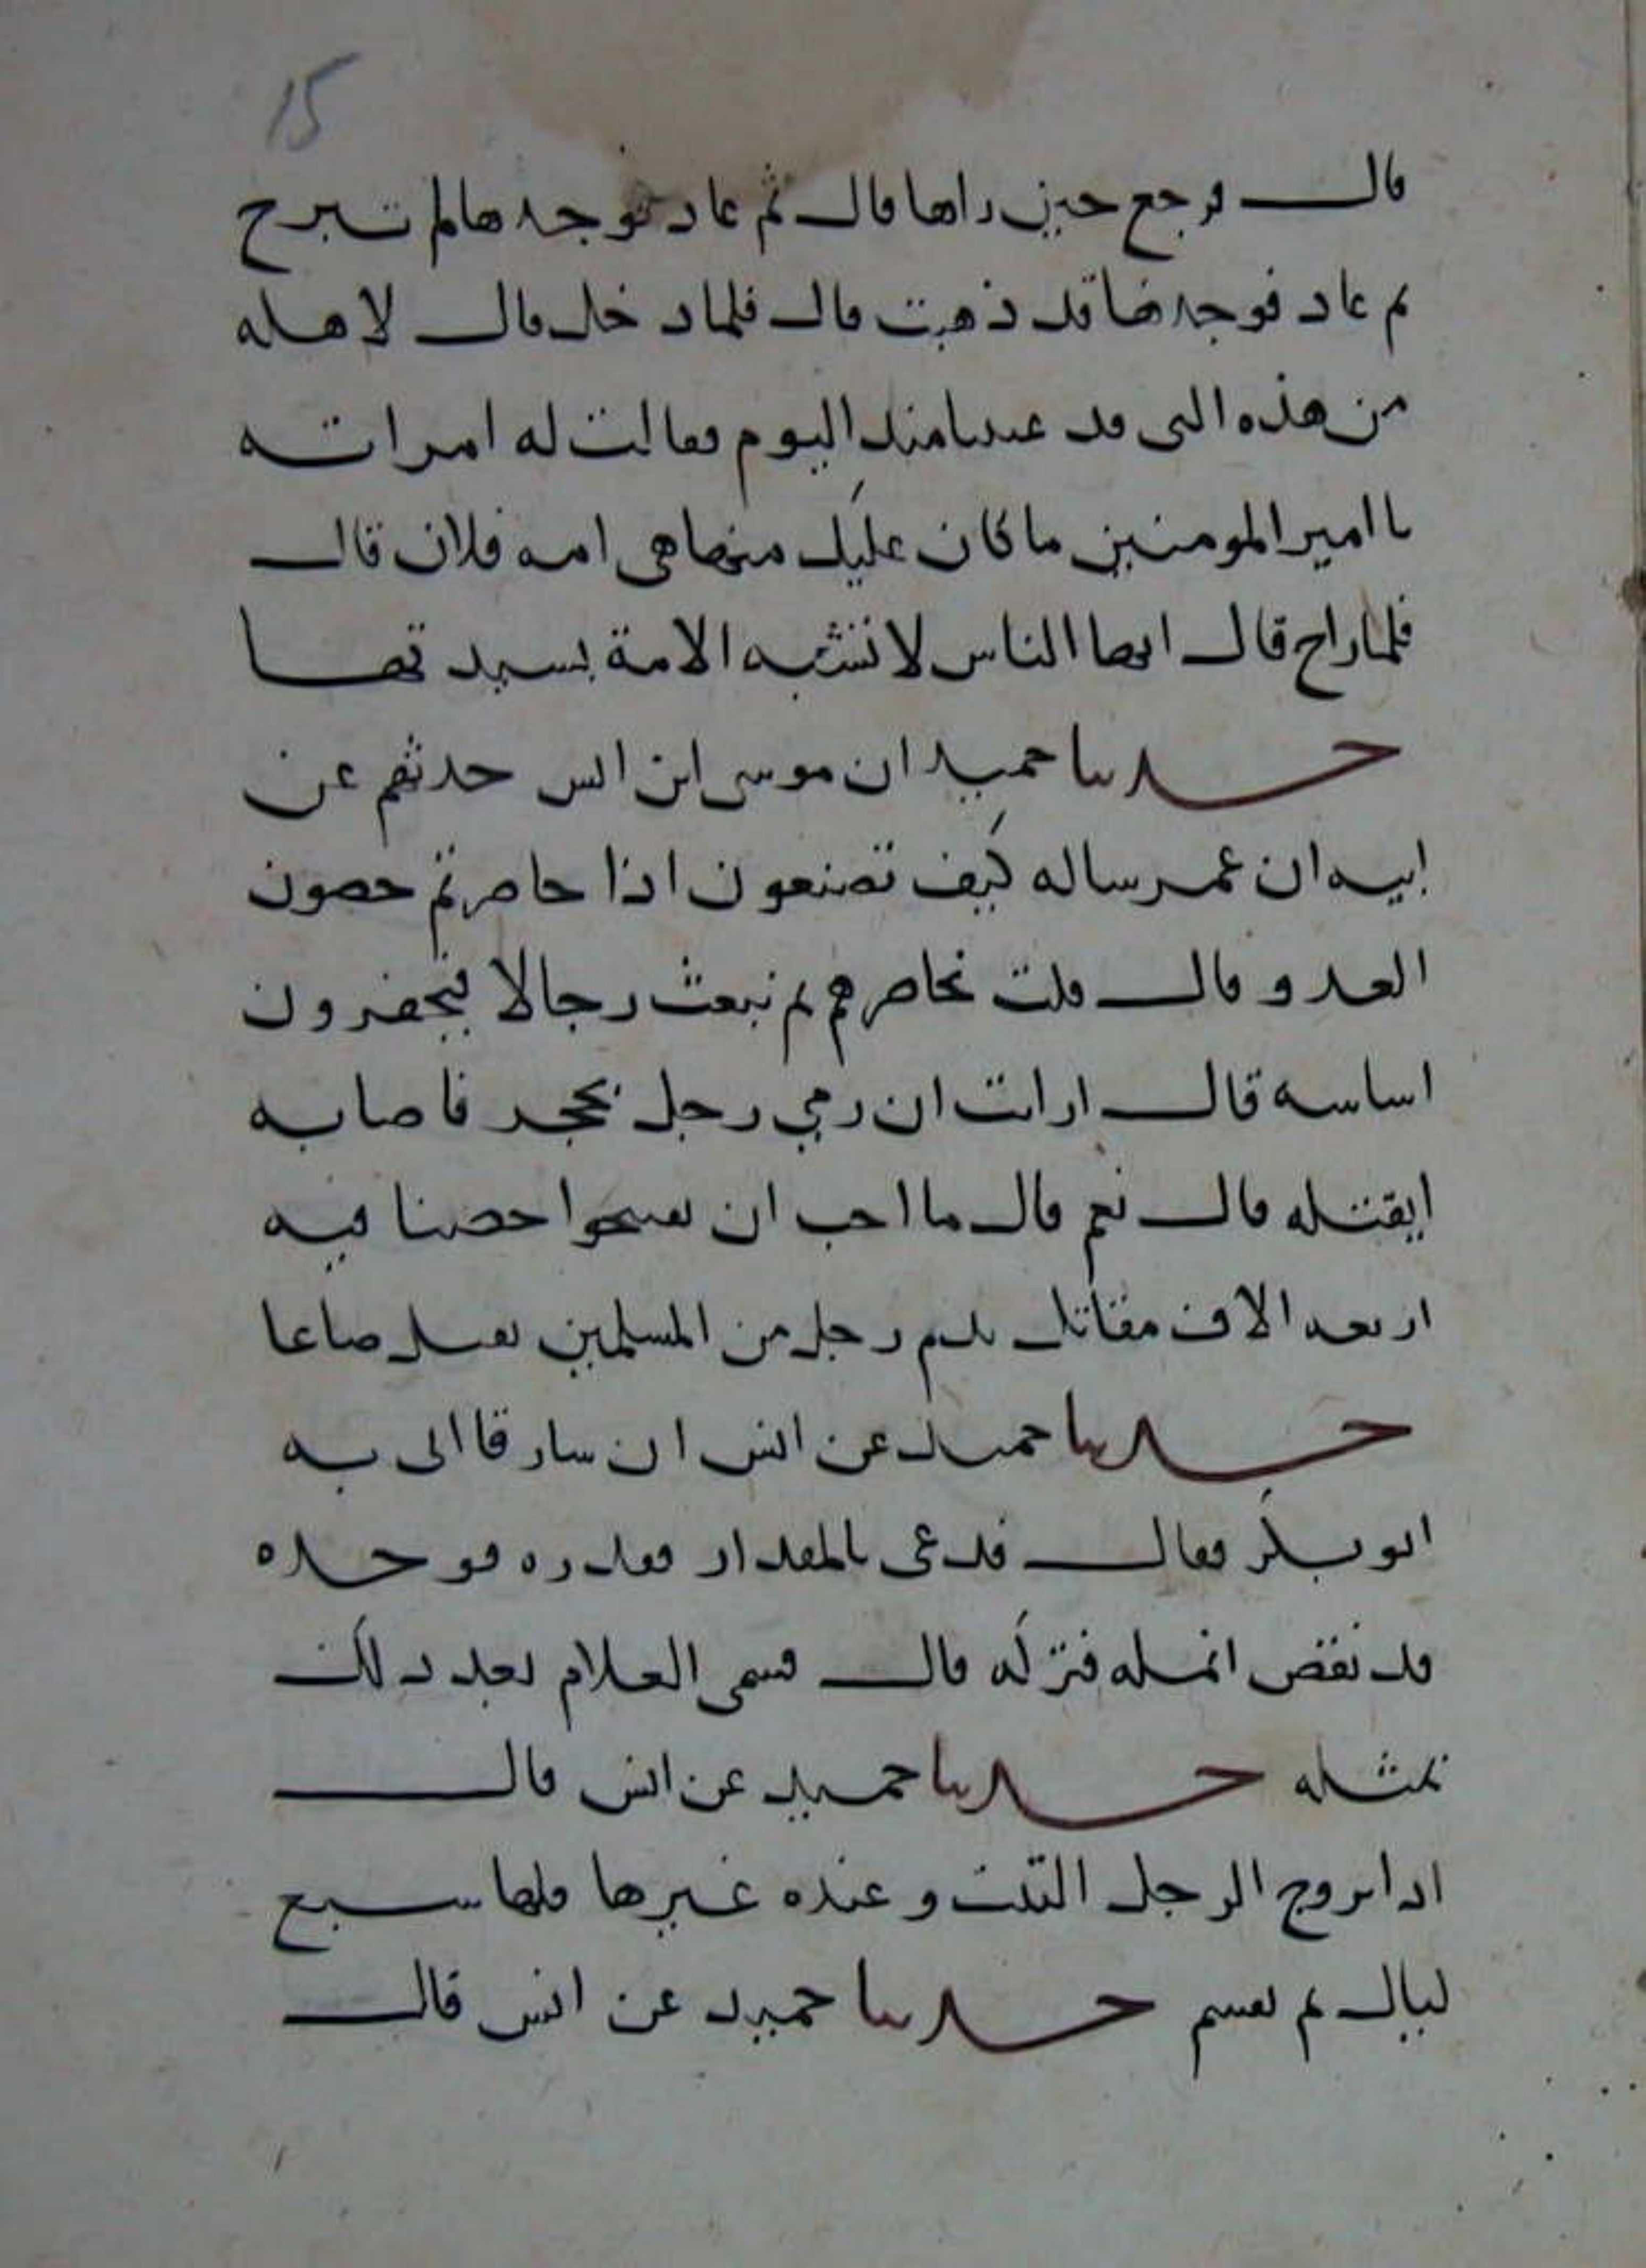 15
قال فرجع حين راها قال ثم عاد فوجدها لم تبرح
ثم عاد فوجدها قد ذهبت قال فلما دخل قال لاهله
من هذه التي قد عنتنا منذ اليوم فقالت له امراته
يا امير المومنين ما كان عليك منها هي امه فلان قال
فلما راح قال ايها الناس لا تتشبه الامة بسيدتها
حدثنا حميد ان موسى ابن انس حدثهم عن
ابيه ان عمر ساله كيف تصنعون اذا حاصرتم حصون
العدو قال قلت نحاصرهم ثم نبعث رجالا فيحفرون
اساسه قال ارايت ان رمي رجل بحجر فاصابه
ايقتله قال نعم قال ما احب ان تفتحوا حصنا فيه
اربعه الاف مقاتل بدم رجل من المسلمين يقتل ضياعا
حدثنا حميد عن انس ان سارقا اتى به
ابو بكر فقال فدعى بالمقدار فقدره فوجده
قد نقص انمله فتركه قال فسمى الغلام بعد ذلك
نمثله حدثنا حميد عن انس قال
اذا تزوج الرجل الثيب وعنده غيرها فلها سبع
ليال ثم يقسم حدثنا حميد عن انس قال